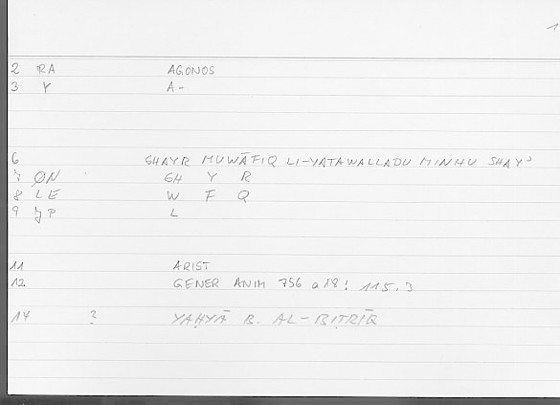 1
2 RA AGONOS
3 Y A-
6 GHAYR MUWĀFIQ LI-YATAWALLADU MINHU SHAYʾ
7 ØN GH Y R
8 LE W F Q
9 JP L
11 ARIST
12 GENER ANIM 756 a 18! 115.3
14 ? YAḤYĀ B. AL-BIṬRĪQ